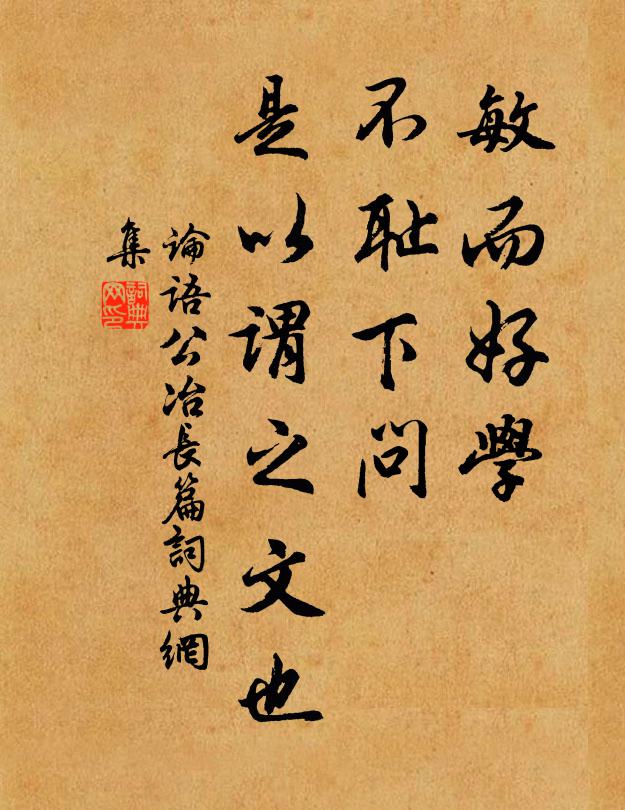 敏而好學
不耻下問
是以謂之文也
論語公冶長篇詞典網
集
詞典
网印